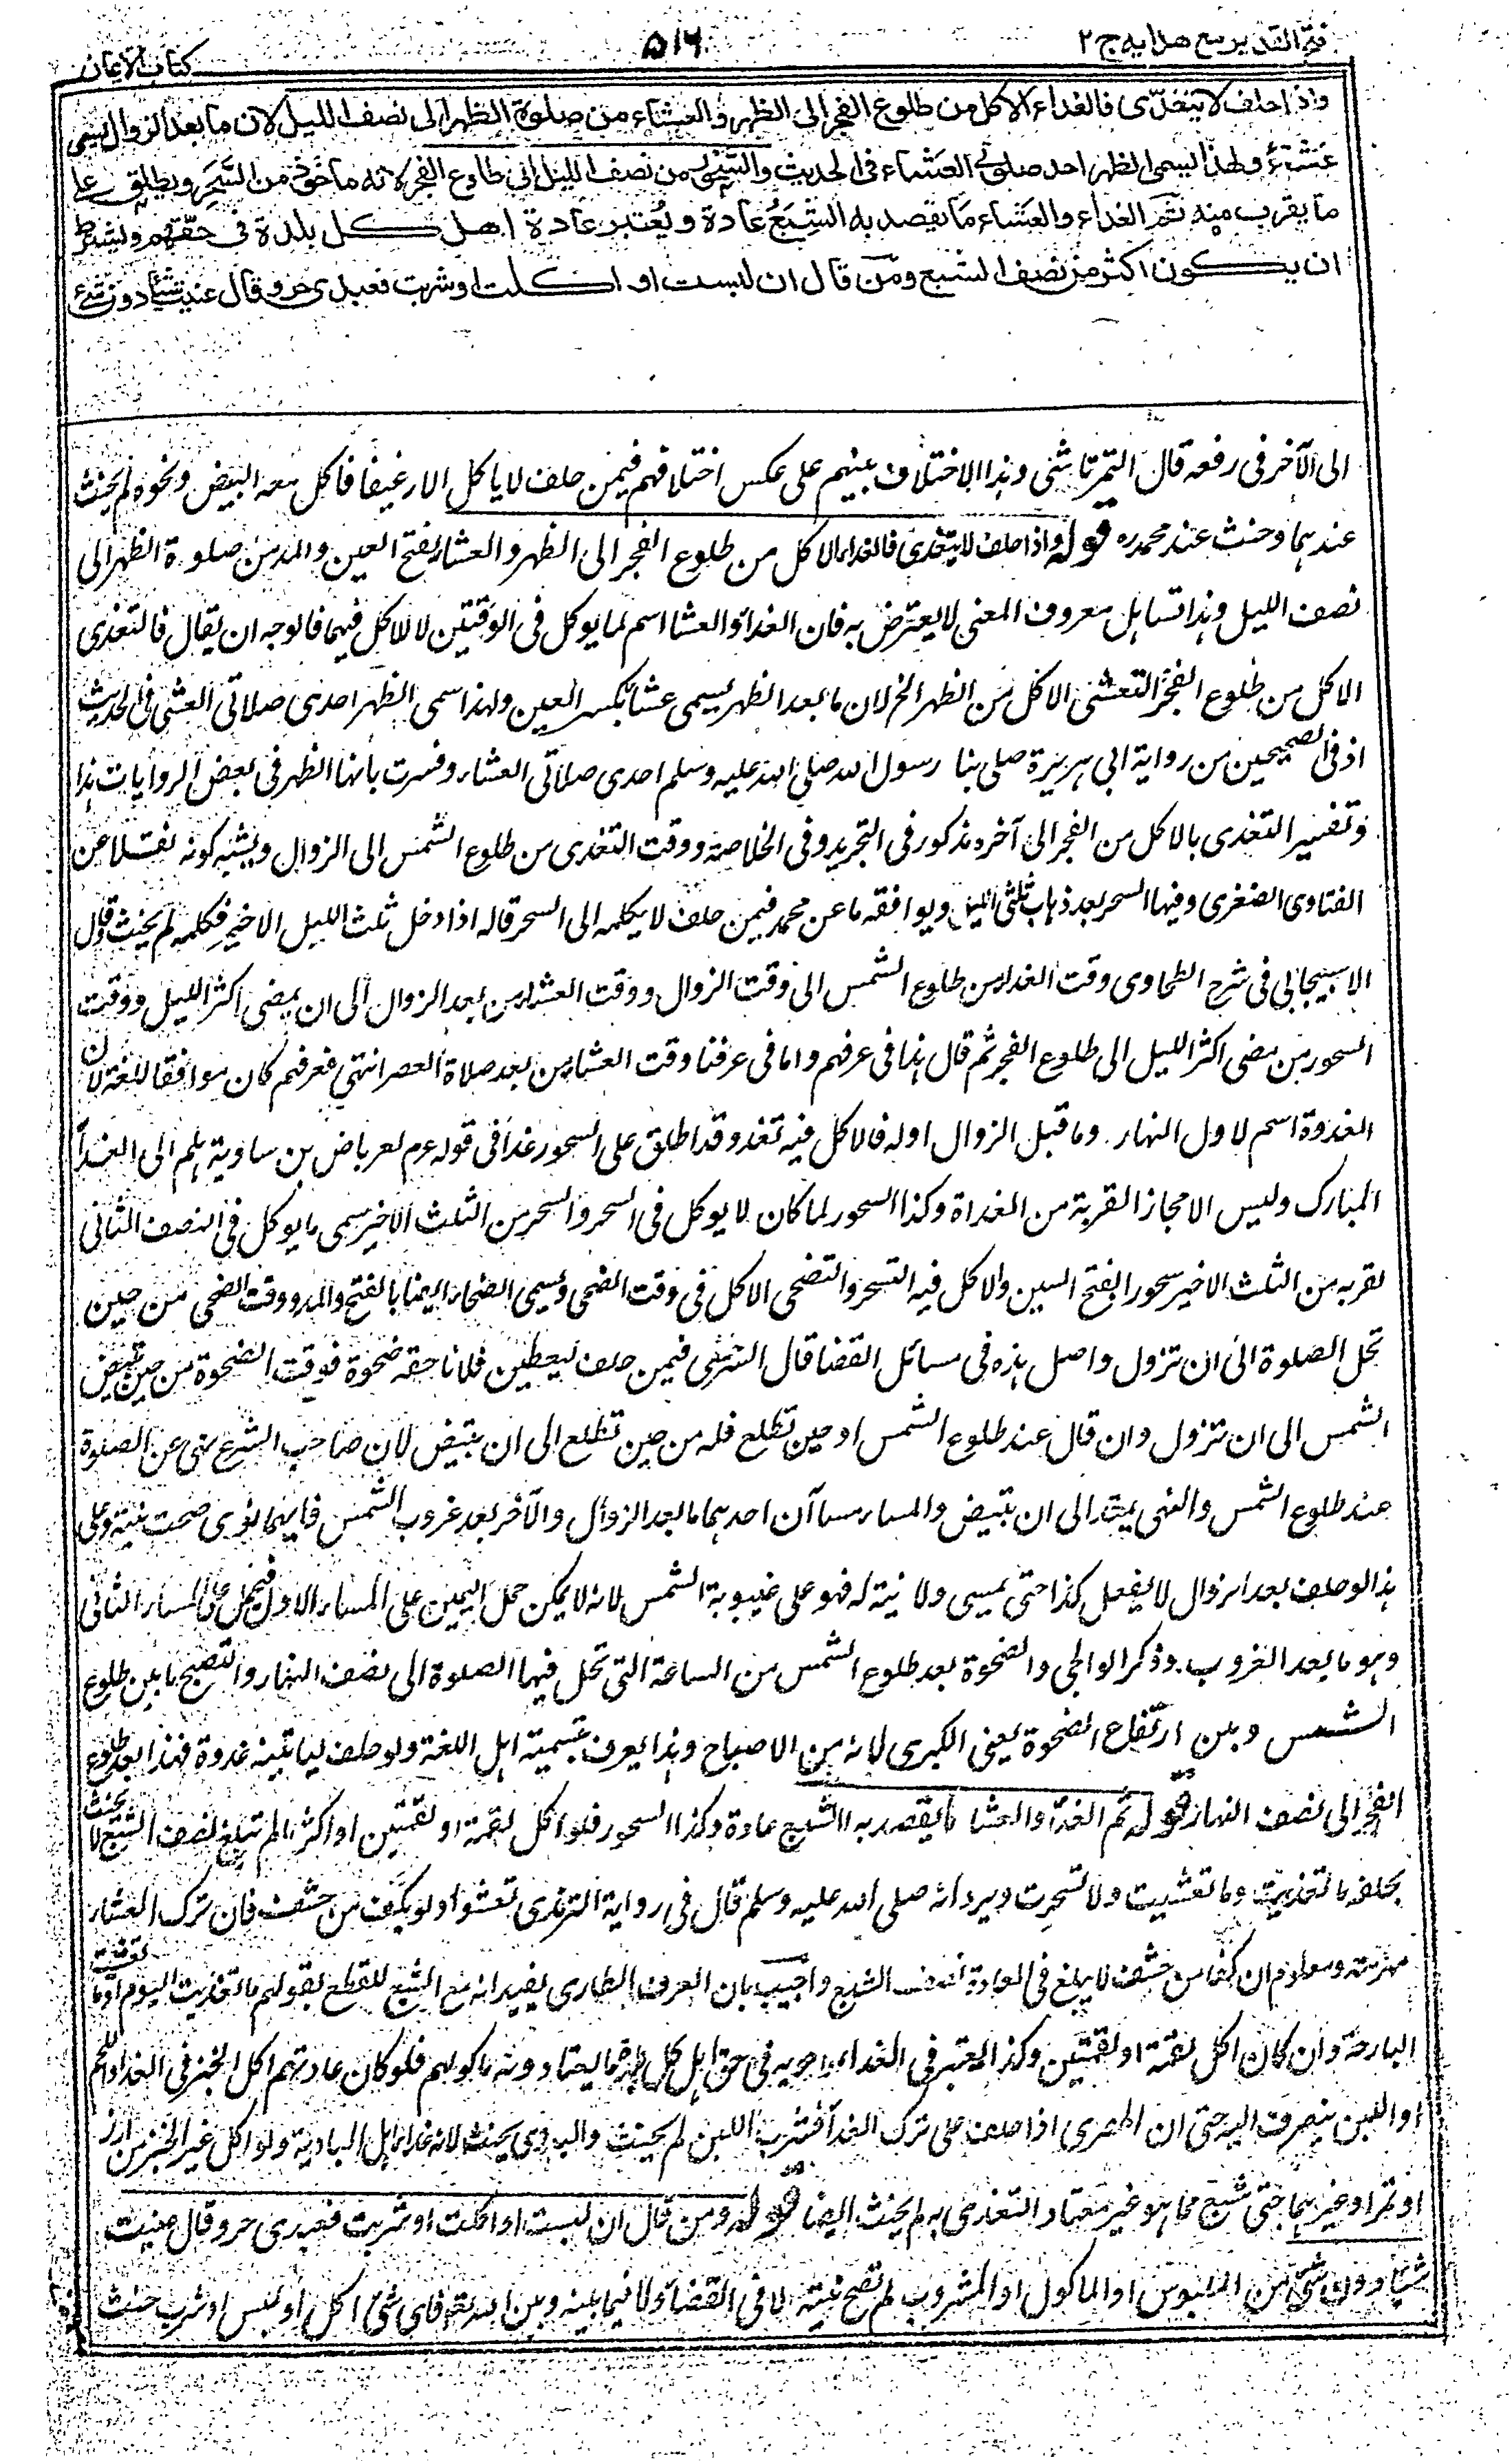 فتح القدير مع هدايه ج ٢
٥١٦
كتاب الايمان
واذا حلف لا يتغدّى فالغداء الاكل من طلوع الفجر الى الظهر والعشاء من صلوة الظهر الى نصف الليل لان ما بعد الزوال يسمى
عشاءً ولهذا يسمى الظهر احد صلوتي العشاء فى الحديث والسّحور من نصف الليل الى طلوع الفجر لانه ماخوذ من السَّحَر ويطلق على
ما يقرب منه ثم الغداء والعَشاء ما يقصد به الشِّبَعُ عادة ويُعتبر عادة اهل كل بلدة فى حقّهم ويشترط
ان يكون اكثر من نصف الشبع ومن قال ان لبست او اكلت او شربت فعبدى حر وقال عنيت شيئا دون شئ
الى الآخر فى رفعه قال التمرتاشى وهذا الاختلاف بينهم على عكس اختلافهم فيمن حلف لا ياكل الا رغيفا فاكل معه البيض ونحوه لم يحنث
عندهما وحنث عند محمد ره قوله واذا حلف لا يتغدى فالغداء الاكل من طلوع الفجر الى الظهر والعشاء بفتح العين والمد من صلوة الظهر الى
نصف الليل وهذا تساهل معروف المعنى لا يعترض به فان الغداء والعشا اسم لما يوكل فى الوقتين لا للاكل فيهما فالوجه ان يقال فالتغدى
الاكل من طلوع الفجر والتعشى الاكل من الظهر الخ لان ما بعد الظهر يسمى عشاء بكسر العين ولهذا سمى الظهر احدى صلاتى العشى فى الحديث
اذ فى الصحيحين من رواية ابى هريرة صلى بنا رسول الله صلى الله عليه وسلم احدى صلاتى العشاء وفسرت بانها الظهر فى بعض الروايات هذا
وتفسير التغدى بالاكل من الفجر الى آخره مذكور فى التجريد وفى الخلاصة ووقت التغدى من طلوع الشمس الى الزوال ويشبه كونه نقلا عن
الفتاوى الصغرى وفيها السحر بعد ذهاب ثلثى الليل ويوافقه ما عن محمد فيمن حلف لا يكلمه الى السحر قال اذا دخل ثلث الليل الاخير فكلمه لم يحنث وقال
الاسبيجابى فى شرح الطحاوى وقت الغداء من طلوع الشمس الى وقت الزوال ووقت العشاء من بعد الزوال الى ان يمضى اكثر الليل ووقت
السحور من مضى اكثر الليل الى طلوع الفجر ثم قال هذا فى عرفهم واما فى عرفنا وقت العشاء من بعد صلاة العصر انتهى فعرفهم كان موافقا للغة لان
الغدوة اسم لاول النهار وما قبل الزوال اوله فالاكل فيه تغد وقد اطلق على السحور غداء فى قوله عم لعرباض بن سارية هلم الى الغداء
المبارك وليس الا مجازا لقربه من الغداة وكذا السحور لما كان لا يوكل فى السحر والسحر من الثلث الاخير سمى ما يوكل فى النصف الثانى
لقربه من الثلث الاخير سحورا بفتح السين والاكل فيه التسحر والتضحى الاكل فى وقت الضحى ويسمى الضحاء ايضا بالفتح والمد ووقت الضحى من حين
تحل الصلوة الى ان تزول واصل هذه فى مسائل القضا قال السرخسى فيمن حلف ليعطين فلانا حقه ضحوة فوقت الضحوة من حين تبيض
الشمس الى ان تزول وان قال عند طلوع الشمس او حين تطلع فله من حين تطلع الى ان تبيض لان صاحب الشرع نهى عن الصلوة
عند طلوع الشمس والنهى يمتد الى ان تبيض والمساء مساآن احدهما ما بعد الزوال والآخر بعد غروب الشمس فايهما نوى صحت نيته وعلى
هذا لو حلف بعد الزوال لا يفعل كذا حتى يمسى ولا نية له فهو على غيبوبة الشمس لانه لا يمكن حمل اليمين على المساء الاول فيحمل على المساء الثانى
وهو ما بعد الغروب وذكر الوالجى والضحوة بعد طلوع الشمس من الساعة التى تحل فيها الصلوة الى نصف النهار والتصبح ما بين طلوع
الشمس وبين ارتفاع الضحوة يعنى الكبرى لانه من الاصباح وهذا يعرف بتسمية اهل اللغة ولو حلف لياتينه غدوة فهذا بعد طلوع
الفجر الى نصف النهار قوله ثم الغداء والعشا ما يقصد به الشبع عادة وكذا السحور فلو اكل لقمة او لقمتين او اكثر ما لم تبلغ نصف الشبع لا يحنث
بحلفه ما تغديت وما تعشيت ولا تسحرت ويرد انه صلى الله عليه وسلم قال فى رواية الترمذى تعشوا ولو بكف من حشف فان ترك العشاء
مهرمة ومعلوم ان كفا من حشف لا يبلغ فى العادة نصف الشبع واجيب بان العرف الطارى يفيد انه مع الشبع للقطع بقولهم ما تغديت اليوم او ما تعشيت
البارحة وان كان اكل لقمة او لقمتين وكذا المعتبر فى الغداء واخويه فى حق اهل كل بلدة ما يعتادونه ماكولهم فلو كان عادتهم اكل الخبز فى الغداء واللحم
او اللبن ينصرف اليه حتى ان المصرى اذا حلف على ترك الغداء فشرب اللبن لم يحنث والبدوى يحنث لانه غداء اهل البادية ولو اكل غير الخبز من ارز
او تمر او غيرهما حتى شبع مما هو غير معتاد التغدى به لم يحنث ايضا قوله ومن قال ان لبست او اكلت او شربت فعبدى حر وقال عنيت
شيئا دون شئ من الملبوس او الماكول او المشروب لم تصح نيته لا فى القضاء ولا فيما بينه وبين الله تعالى فاى شئ اكل او لبس او شرب حنث